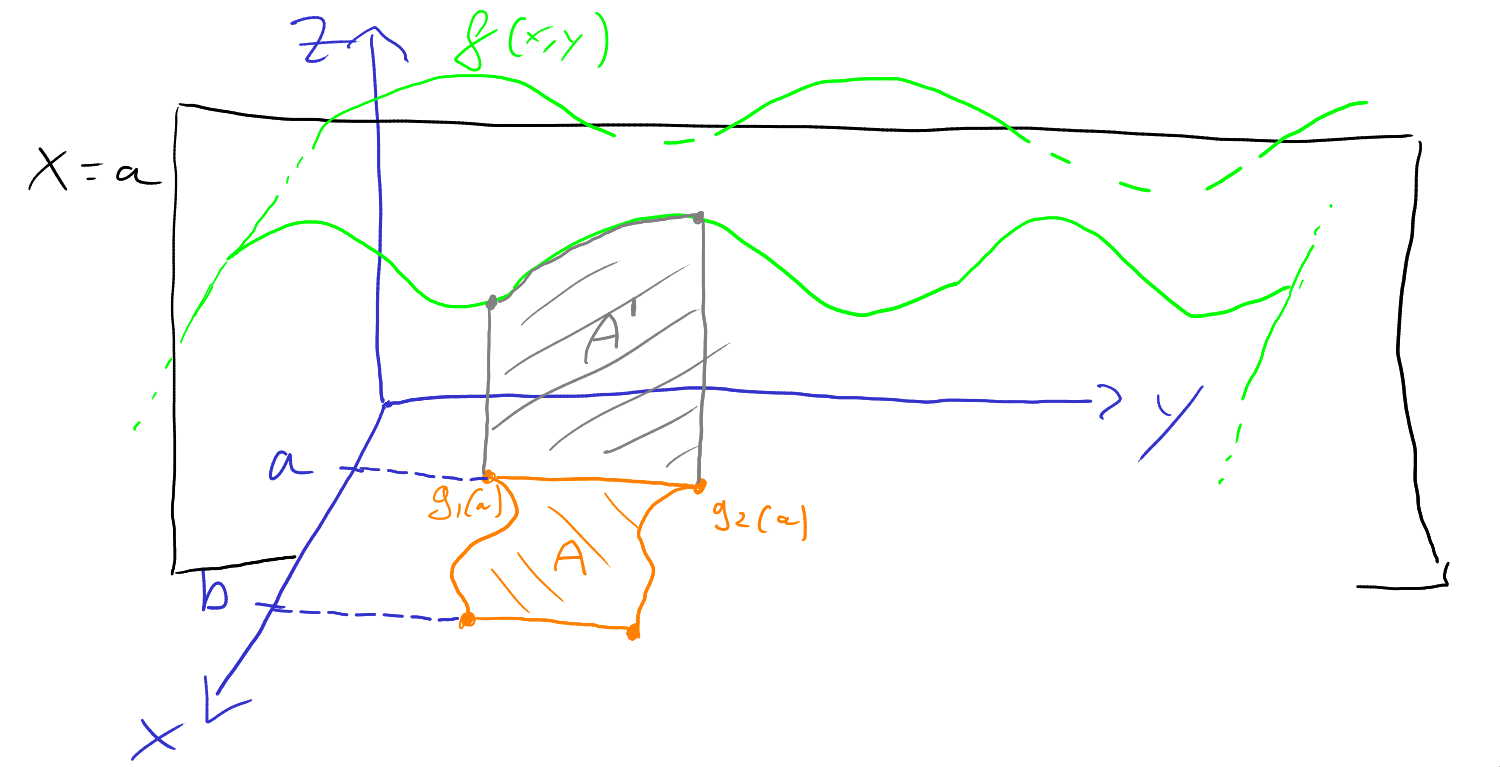 Z
f(x,y)
X = a
A'
y
a
g₁(a)
g₂(a)
A
b
x